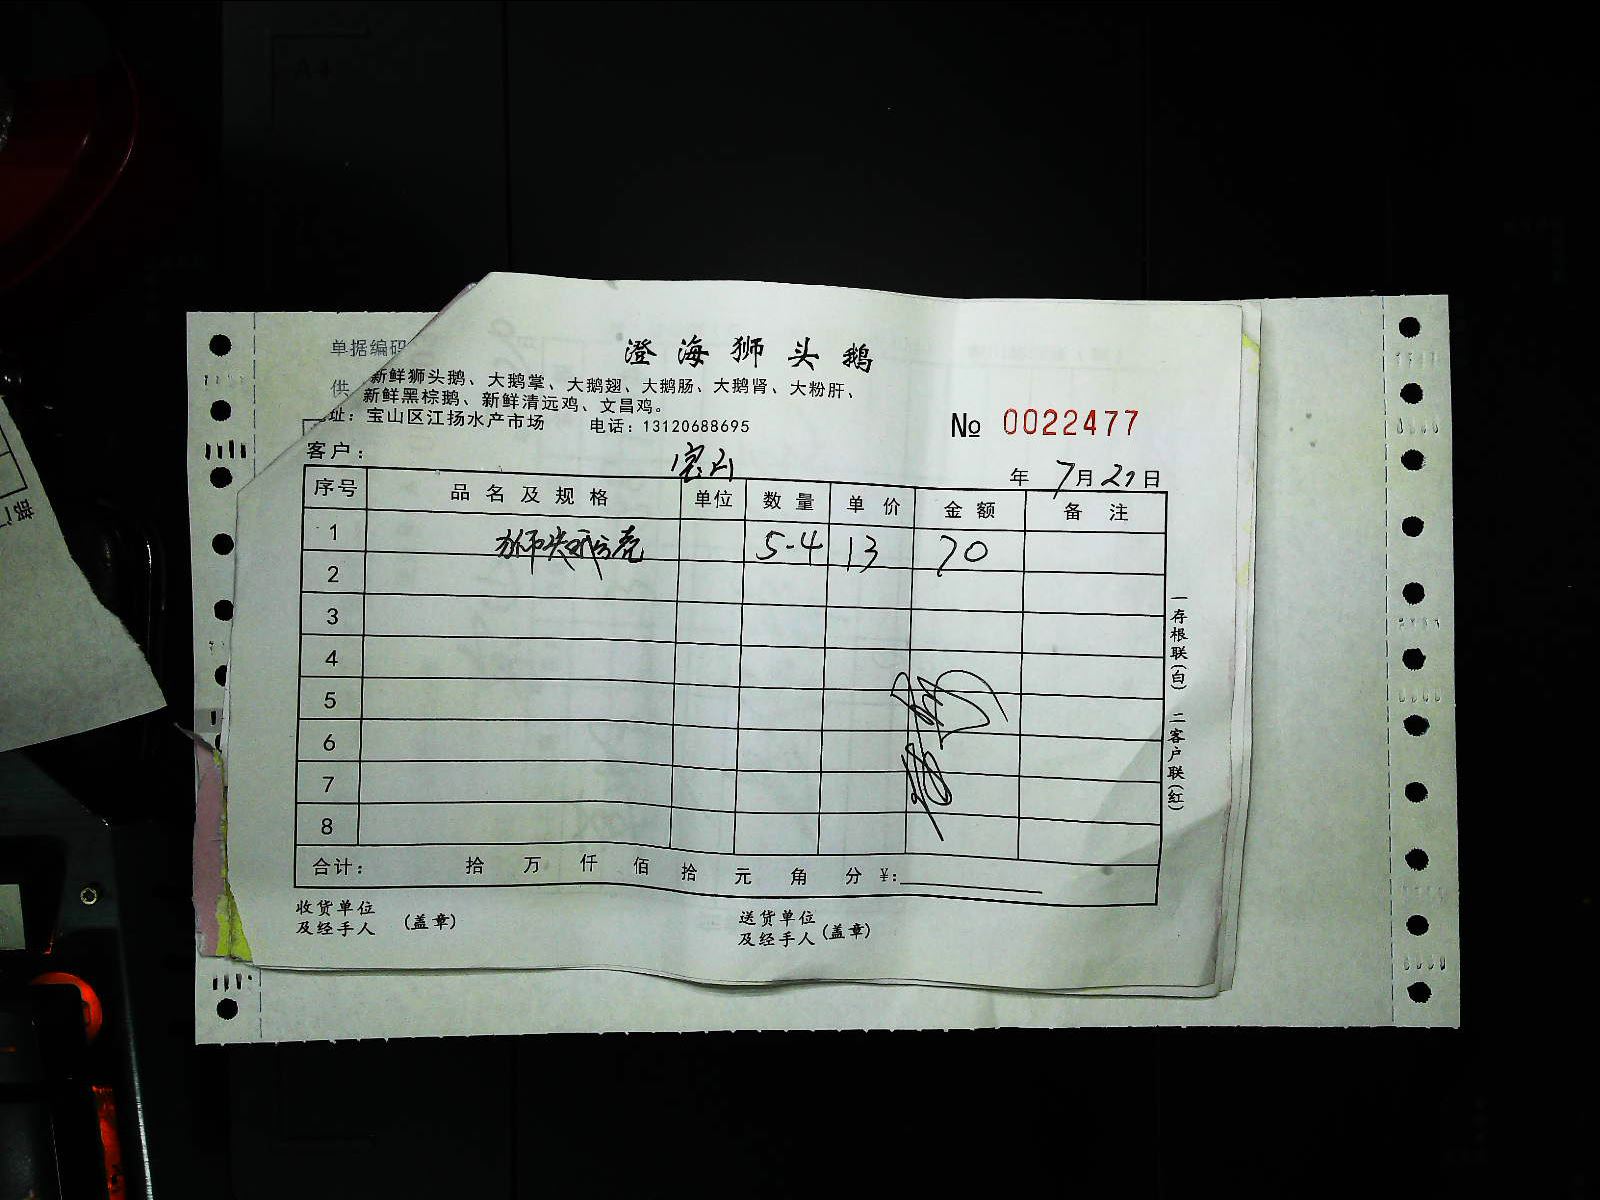 单据编码
澄海狮头鹅
供
新鲜狮头鹅、大鹅掌、大鹅翅、大鹅肠、大鹅肾、大粉肝、
新鲜黑棕鹅、新鲜清远鸡、文昌鸡。
址：宝山区江扬水产市场 电话：13120688695
№ 0022477
客户：宝山
年 7月21日
序号 品名及规格 单位 数量 单价 金额 备注
1 狮头鹅壳 5-4 13 70
2
3
4
5
6
7
8
合计： 拾 万 仟 佰 拾 元 角 分 ¥:
收货单位
及经手人 (盖章)
送货单位
及经手人 (盖章)
一存根联(白) 二客户联(红)